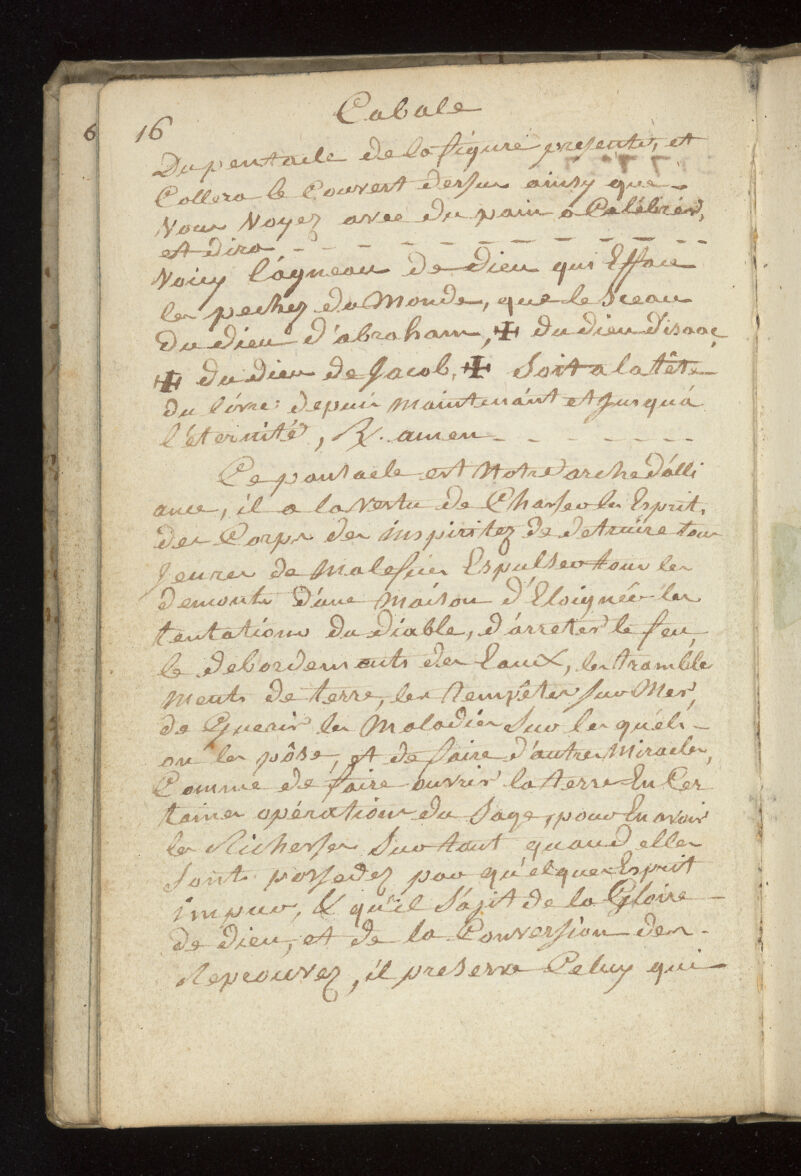 6
Cabale
16
Du pentacle de la figure presente, et
Collera le Couvert dessus ainsy que
Vous Voyez avec du pain a Celébrér,
et dira
Voicy l'agneau de dieu qui Efface
les pechez du Monde, que le Sceau
du dieu d'abraham, ✠ du dieu d'isaac,
✠ du dieu de Jacob, ✠ Soit a la tête
du livre depuis maintenant et Jusqu'à
l'éternité, ℟. amen
Ce pantacle est Notre arche d'alli
ance, il a la vertu de Chasser les Esprit,
des Corps des inspiritez de detruire tous
Jeures de Malefices Expulser tous les
demonts d'une maison d'Eloignér les
tentations du diable, d'arreter le feu
le debordements des Eaux, les tremble
ments de terre, les tempêtes sur Mer,
de Guerir les Maladies Sur lesquéls
on les pôse, et de faire d'autres Miracles,
Comme de faire ouvrir la terre En Cer
taines opérations du Sage, pour En avoir
les Richesses Sur tout quand elles
Sont possedez par quélques Esprit
impur, & qu'il S'agit de la Gloire
de dieu, et de la Conversion des
Reprouvez, il preserve Celuy qui